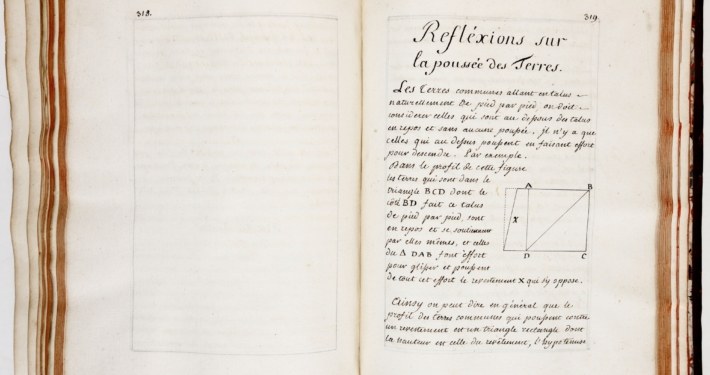 318.
319.
Refléxions sur
la poussée des Terres.
Les terres communes allant en talus
naturellement De pied par pied on doit
considerer celles qui sont au dessus des talus
en repos et sans aucune poussée, jl n'y a que
celles qui au dessus poussent en faisant effort
pour descendre. Par exemple.
Dans le profil de cette figure
les terres qui sont dans le
triangle BCD dont le
côté BD fait ce talus
de pied par pied, sont
en repos et se soutiennent
par elles mêmes, et celles
du Δ DAB font effort
pour glisser et poussent
de tout cet effort le revêtement X qui s'y oppose.
A
B
X
D
C
Ainsy on peut dire en général que le
profil des terres communes qui poussent contre
un revêtement est un triangle rectangle dont
la hauteur est celle du revêtement, l'hypotenuse